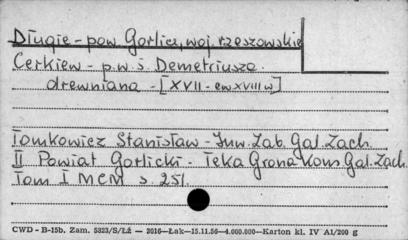 Długie - pow. Gorlice, woj. rzeszowskie
Cerkiew - p.w. ś. Demetriusza
drewniana - [XVII - ew XVIII w]
Tomkowicz Stanisław - Inw. Zab. Gal. Zach.
II Powiat Gorlicki - Teka Grona Kons. Gal. Zach.
Tom I MCM s. 251.
CWD - B-15b. Zam. 5823/S/Łź — 2016—Łak—15.11.56—4.000.000—Karton kl. IV A1/200 g